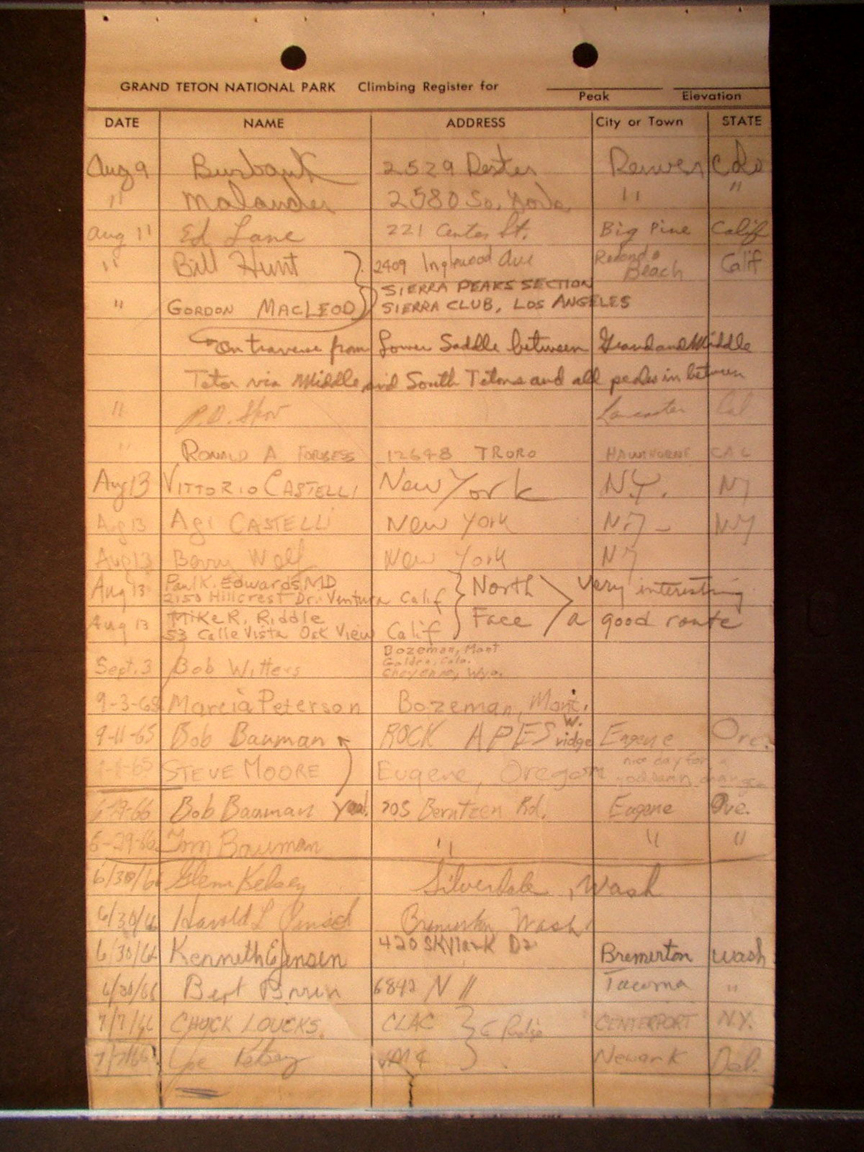 GRAND TETON NATIONAL PARK Climbing Register for
Peak Elevation
DATE NAME ADDRESS City or Town STATE
Aug 9 Burbank 2529 Dexter Denver Colo
" Malander 2580 So. "  "
Aug 11 Ed Lane 221 Center St. Big Pine Calif
" Bill Hunt 2409 Inglewood Ave Redondo Beach Calif
SIERRA PEAKS SECTION
" GORDON MACLEOD SIERRA CLUB, LOS ANGELES
on traverse from Lower Saddle between Grand and Middle
Teton via Middle and South Tetons and all peaks in between
" Lancaster Cal
" RONALD A. 12648 TRORO HAWTHORNE CAL
Aug 13 VITTORIO CASTELLI New York N.Y. NY
Aug 13 Agi CASTELLI New York N.Y. NY
Aug 13 Barry Wolf New York NY
Aug 13 Paul K. Edwards, MD North very interesting
2153 Hillcrest Dr. Ventura Calif
Aug 13 MIKE R. Riddle Face a good route
53 Calle Vista Oak View Calif
Bozeman, Mont
Golden, Colo.
Sept. 3 Bob Witters Cheyenne, Wyo.
9-3-65 Marcia Peterson Bozeman, Mont.
9-11-65 Bob Bauman ROCK APES W. ridge Eugene Ore.
STEVE MOORE Eugene, Oregon
6-29-66 Bob Bauman 705 Berntzen Rd. Eugene Ore.
6-29-66 Tom Bauman " " "
6/30/66 Glenn Kelsey Silverdale, Wash
6/30/66 Harold L Bremerton Wash
6/30/66 Kenneth E Jensen 420 Skylark Dr Bremerton Wash
6/30/66 Bert 6842 N // Tacoma "
7/7/66 CHUCK LOUCKS. CLAC CENTERPORT N.Y.
7/7/66 Joe Kelsey Newark Del.